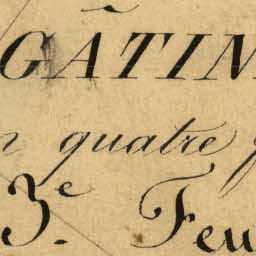 GÂTIN
n quatre f
3e. Feu